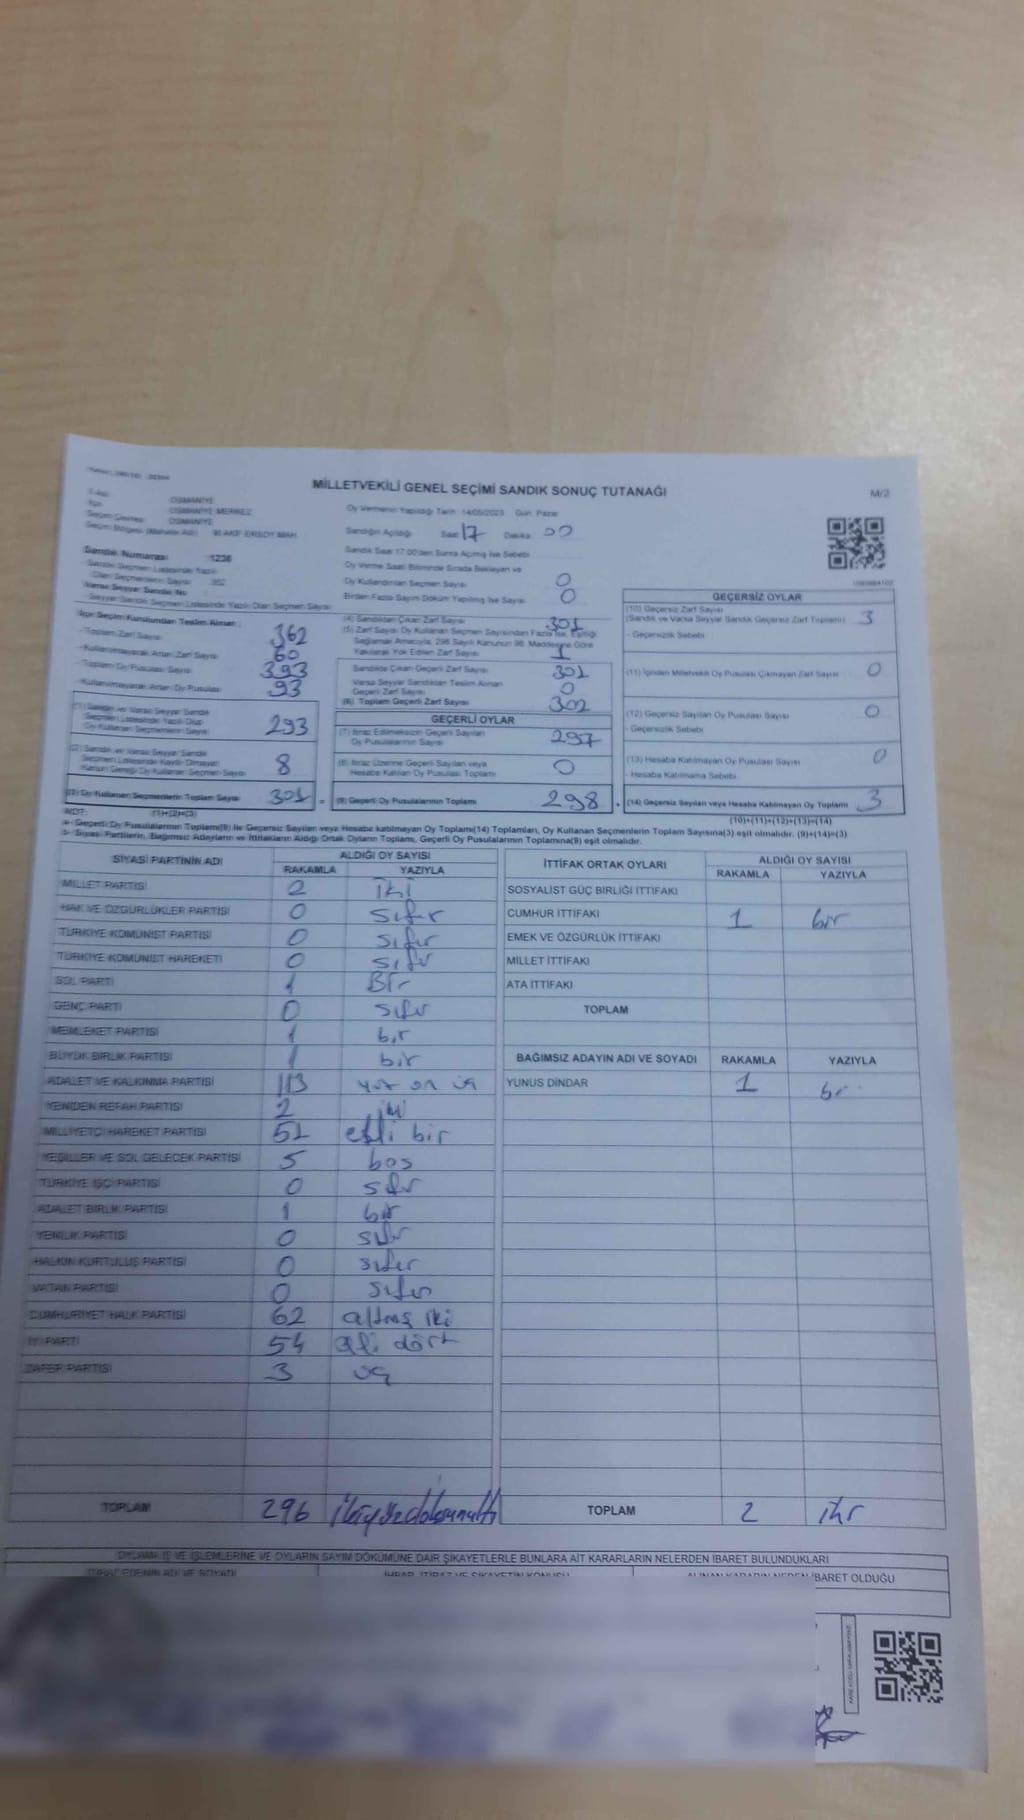 MİLLETVEKİLİ GENEL SEÇİMİ SANDIK SONUÇ TUTANAĞI
M/2
OSMANİYE
OSMANİYE MERKEZ
OSMANİYE
Seçim Bölgesi (Mahalle Adı) M.AKİF ERSOY MAH.
Oy Vermenin Yapıldığı Tarih 14/05/2023 Gün Pazar
Sandığın Açıldığı Saat 17 Dakika 00
Sandık Saat 17.00'den Sonra Açılmış İse Sebebi
Oy Verme Saati Bitiminde Sırada Bekleyen ve
Oy Kullandırılan Seçmen Sayısı 0
Birden Fazla Sayım Döküm Yapılmış İse Sayısı 0
Sandık Numarası 1236
Toplam Zarf Sayısı 362
Kullanılmayarak Artan Zarf Sayısı 60
Toplam Oy Pusulası Sayısı 393
Kullanılmayarak Artan Oy Pusulası 93
Oy Kullanan Seçmenlerin Sayısı 293
Kanun Gereği Oy Kullanan Seçmen Sayısı 8
(3) Oy Kullanan Seçmenlerin Toplam Sayısı 301 =
(1)+(2)=(3)
(4) Sandıktan Çıkan Zarf Sayısı 301
(5) Zarf Sayısı Oy Kullanan Seçmen Sayısından Fazla İse, Eşitliği
Sağlamak Amacıyla, 298 Sayılı Kanunun 98. Maddesine Göre
Yakılarak Yok Edilen Zarf Sayısı 1
Sandıkta Çıkan Geçerli Zarf Sayısı 301
Varsa Seyyar Sandıktan Teslim Alınan
Geçerli Zarf Sayısı 0
(6) Toplam Geçerli Zarf Sayısı 302
GEÇERLİ OYLAR
(7) İtiraz Edilmeksizin Geçerli Sayılan
Oy Pusulalarının Sayısı 297
(8) İtiraz Üzerine Geçerli Sayılan veya
Hesaba Katılan Oy Pusulası Toplamı 0
(9) Geçerli Oy Pusulalarının Toplamı 298 +
GEÇERSİZ OYLAR
(10) Geçersiz Zarf Sayısı
(Sandık ve Varsa Seyyar Sandık Geçersiz Zarf Toplamı) 3
- Geçersizlik Sebebi
(11) İçinden Milletvekili Oy Pusulası Çıkmayan Zarf Sayısı 0
(12) Geçersiz Sayılan Oy Pusulası Sayısı 0
- Geçersizlik Sebebi
(13) Hesaba Katılmayan Oy Pusulası Sayısı 0
- Hesaba Katılmama Sebebi
(14) Geçersiz Sayılan veya Hesaba Katılmayan Oy Toplamı 3
(10)+(11)+(12)+(13)=(14)
NOT:
a- Geçerli Oy Pusulalarının Toplamı(9) ile Geçersiz Sayılan veya Hesaba katılmayan Oy Toplamı(14) Toplamları, Oy Kullanan Seçmenlerin Toplam Sayısına(3) eşit olmalıdır. (9)+(14)=(3)
b- Siyasi Partilerin, Bağımsız Adayların ve İttifakların Aldığı Ortak Oyların Toplamı, Geçerli Oy Pusulalarının Toplamına(9) eşit olmalıdır.
SİYASİ PARTİNİN ADI ALDIĞI OY SAYISI
RAKAMLA YAZIYLA
MİLLET PARTİSİ 2 iki
HAK VE ÖZGÜRLÜKLER PARTİSİ 0 sıfır
TÜRKİYE KOMÜNİST PARTİSİ 0 sıfır
TÜRKİYE KOMÜNİST HAREKETİ 0 sıfır
SOL PARTİ 1 Bir
GENÇ PARTİ 0 sıfır
MEMLEKET PARTİSİ 1 bir
BÜYÜK BİRLİK PARTİSİ 1 bir
ADALET VE KALKINMA PARTİSİ 113 yüz on üç
YENİDEN REFAH PARTİSİ 2 iki
MİLLİYETÇİ HAREKET PARTİSİ 51 elli bir
YEŞİLLER VE SOL GELECEK PARTİSİ 5 beş
TÜRKİYE İŞÇİ PARTİSİ 0 sıfır
ADALET BİRLİK PARTİSİ 1 bir
YENİLİK PARTİSİ 0 sıfır
HALKIN KURTULUŞ PARTİSİ 0 sıfır
VATAN PARTİSİ 0 sıfır
CUMHURİYET HALK PARTİSİ 62 altmış iki
İYİ PARTİ 54 elli dört
ZAFER PARTİSİ 3 üç
TOPLAM 296 ikiyüzdoksanaltı
İTTİFAK ORTAK OYLARI ALDIĞI OY SAYISI
RAKAMLA YAZIYLA
SOSYALİST GÜÇ BİRLİĞİ İTTİFAKI
CUMHUR İTTİFAKI 1 bir
EMEK VE ÖZGÜRLÜK İTTİFAKI
MİLLET İTTİFAKI
ATA İTTİFAKI
TOPLAM
BAĞIMSIZ ADAYIN ADI VE SOYADI RAKAMLA YAZIYLA
YUNUS DİNDAR 1 bir
TOPLAM 2 iki
OYLAMA İŞ VE İŞLEMLERİNE VE OYLARIN SAYIM DÖKÜMÜNE DAİR ŞİKAYETLERLE BUNLARA AİT KARARLARIN NELERDEN İBARET BULUNDUKLARI
İTİRAZ EDENİN ADI VE SOYADI İHBAR, İTİRAZ VE ŞİKAYETİN KONUSU ALINAN KARARIN NEDEN İBARET OLDUĞU